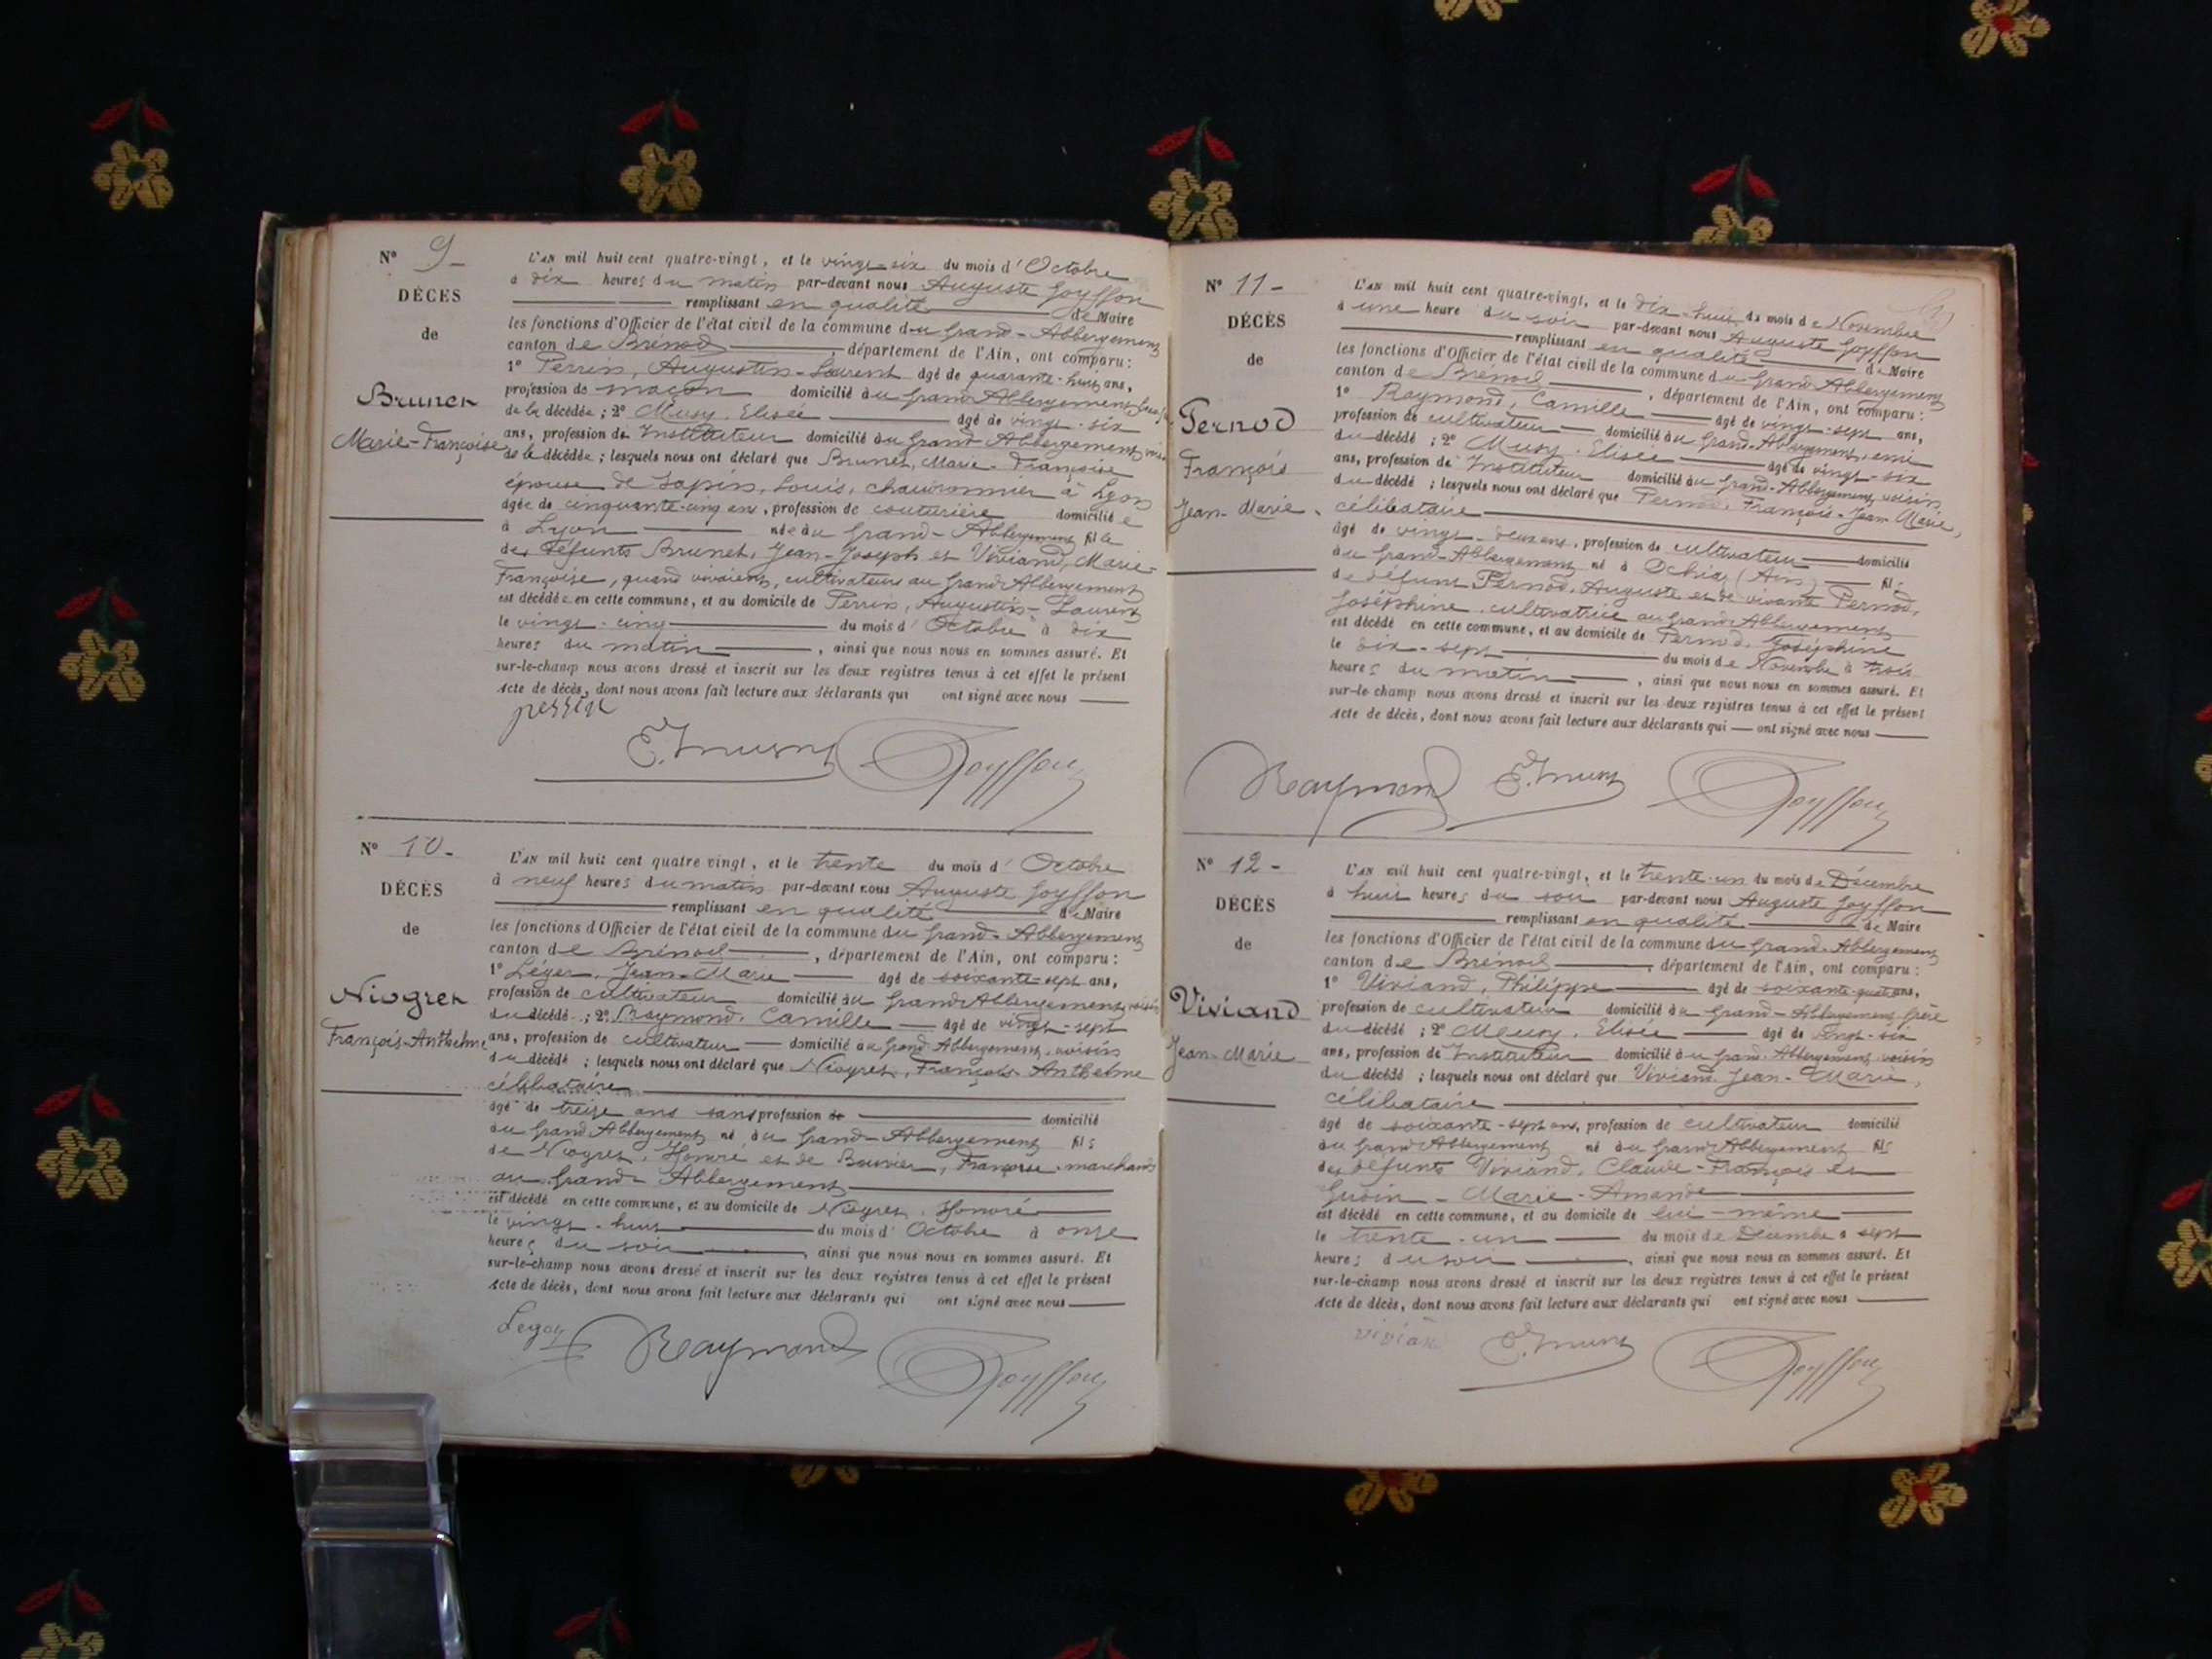 N° 9-
DÉCÈS
de
Brunet
Marie-Françoise
L'AN mil huit cent quatre-vingt, et le vingt-six du mois d'Octobre
à dix heures du matin par-devant nous Auguste Goyffon
remplissant en qualité de Maire
les fonctions d'Officier de l'état civil de la commune du Grand-Abbergement
canton de Brénod, département de l'Ain, ont comparu :
1° Perrin, Augustin-Laurent âgé de quarante-huit ans,
profession de maçon domicilié au Grand Abbergement
de la décédée ; 2° Musy, Elisée âgé de vingt-six
ans, profession de Instituteur domicilié au Grand-Abbergement, voisin
de la décédée ; lesquels nous ont déclaré que Brunet, Marie-Françoise
épouse de Lapin, Louis, chaudronnier à Lyon
âgée de cinquante-cinq ans, profession de couturière domiciliée
à Lyon née au Grand-Abbergement fille
des défunts Brunet, Jean-Joseph et Viviand, Marie-
Françoise, quand vivaient, cultivateurs au Grand Abbergement
est décédée en cette commune, et au domicile de Perrin, Augustin-Laurent
le vingt-cinq du mois d'Octobre à dix
heures du matin, ainsi que nous nous en sommes assuré. Et
sur-le-champ nous avons dressé et inscrit sur les deux registres tenus à cet effet le présent
Acte de décès, dont nous avons fait lecture aux déclarants qui ont signé avec nous
perrin
E. Musy Goyffon
N° 10-
DÉCÈS
de
Niogret
François-Anthelme
L'AN mil huit cent quatre vingt, et le trente du mois d'Octobre
à neuf heures du matin par-devant nous Auguste Goyffon
remplissant en qualité de Maire
les fonctions d'Officier de l'état civil de la commune du Grand-Abbergement
canton de Brénod, département de l'Ain, ont comparu :
1° Léger, Jean-Marie âgé de soixante-sept ans,
profession de cultivateur domicilié au Grand Abbergement, voisin
du décédé ; 2° Raymond, Camille âgé de vingt-sept
ans, profession de cultivateur domicilié au Grand Abbergement, voisin
du décédé ; lesquels nous ont déclaré que Niogret, François-Anthelme
célibataire
âgé de treize ans sans profession de domicilié
au Grand Abbergement né au Grand-Abbergement fils
de Niogret, Honoré et de Bouvier, Françoise, marchands
au Grand-Abbergement
est décédé en cette commune, et au domicile de Niogret, Honoré
le vingt-huit du mois d'Octobre à onze
heures du soir, ainsi que nous nous en sommes assuré. Et
sur-le-champ nous avons dressé et inscrit sur les deux registres tenus à cet effet le présent
Acte de décès, dont nous avons fait lecture aux déclarants qui ont signé avec nous
Leger Raymond Goyffon
N° 11-
DÉCÈS
de
Pernod
François
Jean-Marie
L'AN mil huit cent quatre-vingt, et le dix-huit du mois de Novembre
à une heure du soir par-devant nous Auguste Goyffon
remplissant en qualité de Maire
les fonctions d'Officier de l'état civil de la commune du Grand Abbergement
canton de Brénod, département de l'Ain, ont comparu :
1° Raymond, Camille âgé de vingt-sept ans,
profession de cultivateur domicilié au Grand-Abbergement, ami
du décédé ; 2° Musy, Elisée âgé de vingt-six
ans, profession de Instituteur domicilié au Grand-Abbergement, voisin
du décédé ; lesquels nous ont déclaré que Pernod, François-Jean-Marie,
célibataire
âgé de vingt-deux ans, profession de cultivateur domicilié
au Grand-Abbergement né à Ochiaz (Ain) fils
de défunt Pernod, Auguste et de vivante Pernod,
Joséphine, cultivatrice au Grand Abbergement
est décédé en cette commune, et au domicile de Pernod, Joséphine
le dix-sept du mois de Novembre à trois
heures du matin, ainsi que nous nous en sommes assuré. Et
sur-le champ nous avons dressé et inscrit sur les deux registres tenus à cet effet le présent
Acte de décès, dont nous avons fait lecture aux déclarants qui ont signé avec nous
Raymond E. Musy Goyffon
N° 12-
DÉCÈS
de
Viviand
Jean-Marie
L'AN mil huit cent quatre-vingt, et le trente-un du mois de Décembre
à huit heures du soir par-devant nous Auguste Goyffon
remplissant en qualité de Maire
les fonctions d'Officier de l'état civil de la commune du Grand-Abbergement
canton de Brénod, département de l'Ain, ont comparu :
1° Viviand, Philippe âgé de soixante-quatre ans,
profession de cultivateur domicilié au Grand-Abbergement, frère
du décédé ; 2° Musy, Elisée âgé de vingt-six
ans, profession de Instituteur domicilié au Grand-Abbergement, voisin
du décédé ; lesquels nous ont déclaré que Viviand, Jean-Marie,
célibataire
âgé de soixante-sept ans, profession de cultivateur domicilié
au Grand Abbergement né au Grand Abbergement fils
des défunts Viviand, Claude-François et
Marie-Amande
est décédé en cette commune, et au domicile de lui-même
le trente-un du mois de Décembre à sept
heures du soir, ainsi que nous nous en sommes assuré. Et
sur-le-champ nous avons dressé et inscrit sur les deux registres tenus à cet effet le présent
Acte de décès, dont nous avons fait lecture aux déclarants qui ont signé avec nous
vivian E. Musy Goyffon